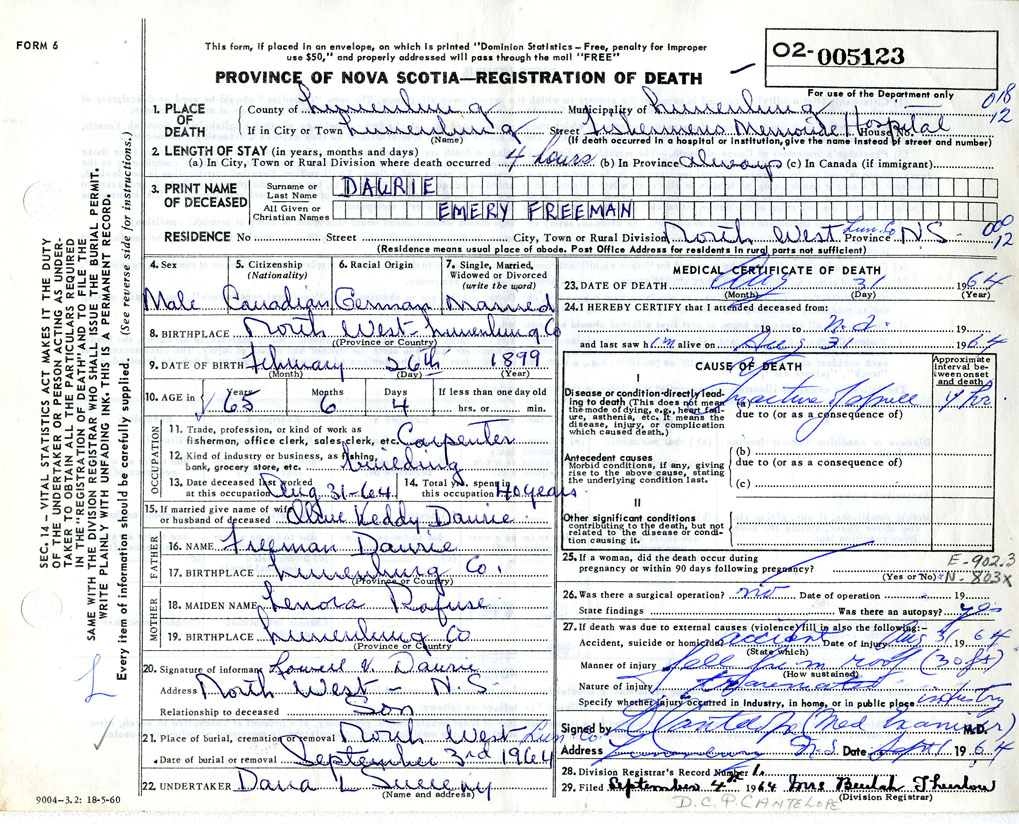 FORM 6
This form, if placed in an envelope, on which is printed "Dominion Statistics – Free, penalty for improper
use $50," and properly addressed will pass through the mail "FREE"
PROVINCE OF NOVA SCOTIA—REGISTRATION OF DEATH
02-005123
For use of the Department only
018
12
1. PLACE OF DEATH
County of Lunenburg Municipality of Lunenburg
If in City or Town Lunenburg Street Fishermens Memorial Hospital House No.
(Name) (If death occurred in a hospital or institution, give name instead of street and number)
2. LENGTH OF STAY (in years, months and days)
(a) In City, Town or Rural Division where death occurred 4 hours (b) In Province always (c) In Canada (if immigrant)
3. PRINT NAME OF DECEASED
Surname or Last Name DAURIE
All Given or Christian Names EMERY FREEMAN
RESIDENCE No Street City, Town or Rural Division North West Lun. Co Province NS-
000
12
(Residence means usual place of abode. Post Office Address for residents in rural parts not sufficient)
4. Sex 5. Citizenship (Nationality) 6. Racial Origin 7. Single, Married, Widowed or Divorced (write the word)
Male Canadian German Married
8. BIRTHPLACE North West - Lunenburg Co
(Province or Country)
9. DATE OF BIRTH February 26th 1899
(Month) (Day) (Year)
10. AGE in Years 65 Months 6 Days 4 If less than one day old hrs. or min.
OCCUPATION
11. Trade, profession, or kind of work as fisherman, office clerk, sales clerk, etc. Carpenter
12. Kind of industry or business, as fishing, bank, grocery store, etc. building
13. Date deceased last worked at this occupation Aug 31-64 14. Total yrs. spent in this occupation 40 years
15. If married give name of wife or husband of deceased Keddy Daurie
FATHER
16. NAME Freeman Daurie
17. BIRTHPLACE Lunenburg Co.
(Province or Country)
MOTHER
18. MAIDEN NAME Lenora Rafuse
19. BIRTHPLACE Lunenburg Co
(Province or Country)
20. Signature of informant Lowell V. Daurie
Address North West - N.S.
Relationship to deceased Son
21. Place of burial, cremation or removal North West Lun. Co.
Date of burial or removal September 3rd 1964
22. UNDERTAKER Dana L Sweeny
(Name and address)
MEDICAL CERTIFICATE OF DEATH
23. DATE OF DEATH Aug 31 1964
(Month) (Day) (Year)
24. I HEREBY CERTIFY that I attended deceased from:
19 to 19
and last saw h im alive on Aug 31 1964
CAUSE OF DEATH
Approximate interval between onset and death
I
Disease or condition directly leading to death (This does not mean the mode of dying, e.g., heart failure, asthenia, etc. It means the disease, injury, or complication which caused death.)
(a) Fracture of skull 4 hr.
due to (or as a consequence of)
Antecedent causes
Morbid conditions, if any, giving rise to the above cause, stating the underlying condition last.
(b)
due to (or as a consequence of)
(c)
II
Other significant conditions
contributing to the death, but not related to the disease or condition causing it.
25. If a woman, did the death occur during
pregnancy or within 90 days following pregnancy?
(Yes or No)
E-902.3
N-803x
26. Was there a surgical operation? no Date of operation 19
State findings Was there an autopsy? yes
27. If death was due to external causes (violence) fill in also the following:-
Accident, suicide or homicide? accident Date of injury Aug 31 64
(State which)
Manner of injury fell from roof (30 ft)
(How sustained)
Nature of injury
Specify whether injury occurred in industry, in home, or in public place industry
Signed by (Med Examiner) M.D.
Address Lunenburg N.S. Date Sept 1 1964
28. Division Registrar's Record Number
29. Filed September 4th 1964 Mrs Beulah Thurlow
(Division Registrar)
D.C.P. CANTELOPE
SEC. 14 – VITAL STATISTICS ACT MAKES IT THE DUTY
OF THE UNDERTAKER OR PERSON ACTING AS UNDER-
TAKER TO OBTAIN ALL THE PARTICULARS REQUIRED
IN THE "REGISTRATION OF DEATH" AND TO FILE THE
SAME WITH THE DIVISION REGISTRAR WHO SHALL ISSUE THE BURIAL PERMIT.
WRITE PLAINLY WITH UNFADING INK. THIS IS A PERMANENT RECORD.
Every item of information should be carefully supplied. (See reverse side for instructions.)
9004-3.2: 18-5-60